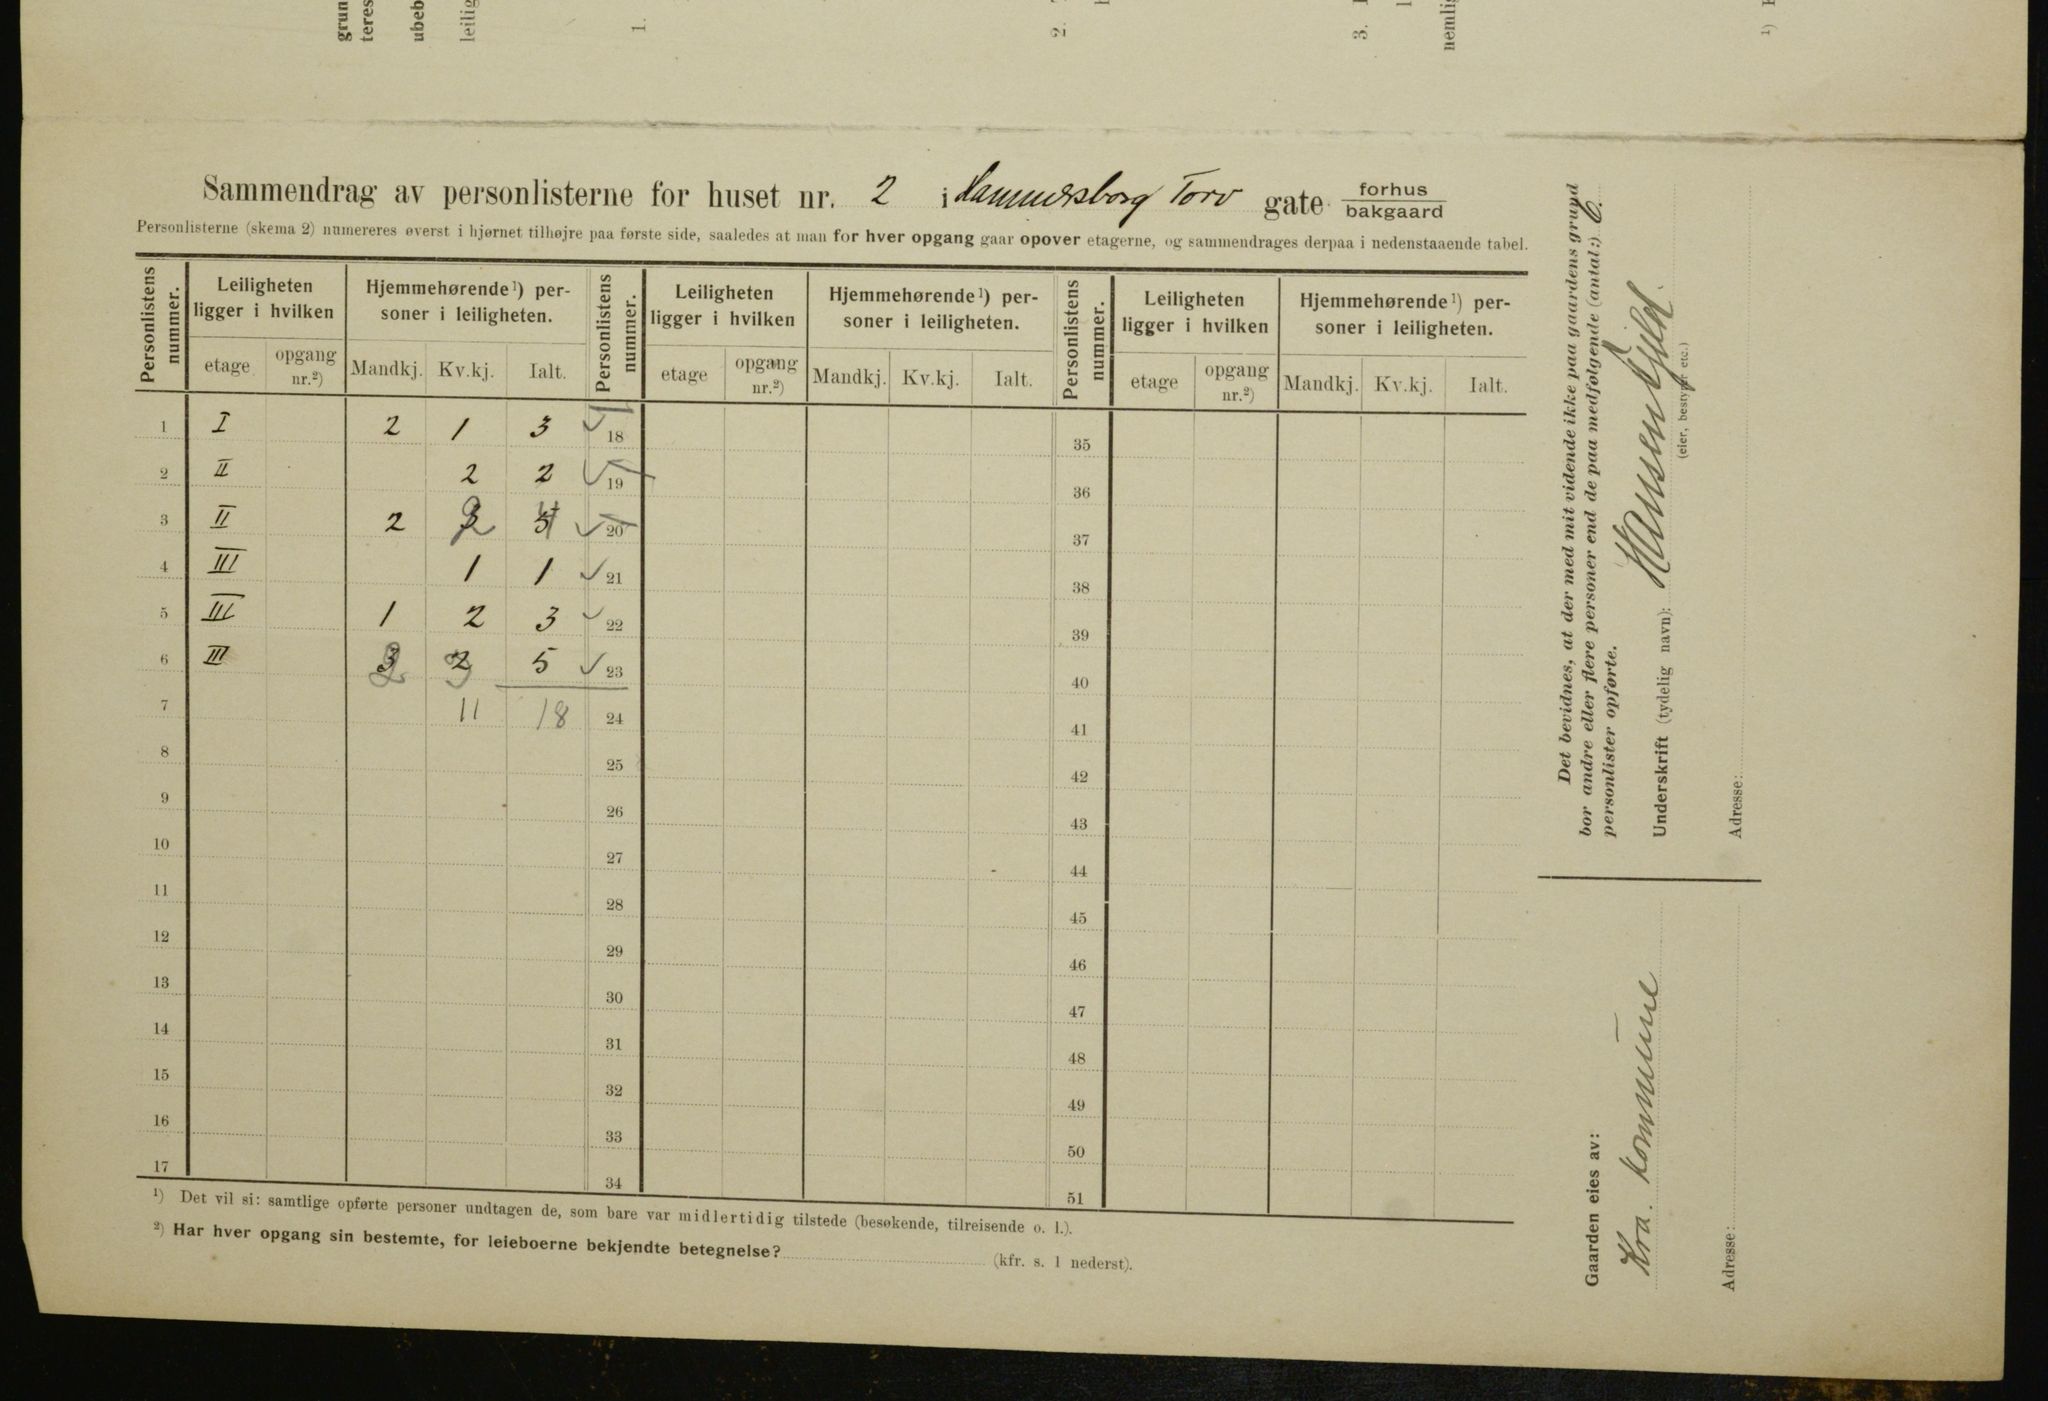 grun
teres
ubeb
leilig
1.
2.
3.
nemlig
1)
Sammendrag av personlisterne for huset nr. 2 i Hammersborg Torv gate forhus
bakgaard
Personlisterne (skema 2) numereres øverst i hjørnet tilhøjre paa første side, saaledes at man for hver opgang gaar opover etagerne, og sammendrages derpaa i nedenstaaende tabel.
Personlistens nummer. Leiligheten ligger i hvilken Hjemmehørende 1) personer i leiligheten. Personlistens nummer. Leiligheten ligger i hvilken Hjemmehørende 1) personer i leiligheten. Personlistens nummer. Leiligheten ligger i hvilken Hjemmehørende 1) personer i leiligheten.
etage opgang nr.2) Mandkj. Kv.kj. Ialt. etage opgang nr.2) Mandkj. Kv.kj. Ialt. etage opgang nr.2) Mandkj. Kv.kj. Ialt.
1 I 2 1 3 18 35
2 II 2 2 19 36
3 II 2 2 4 20 37
4 III 1 1 21 38
5 III 1 2 3 22 39
6 III 2 3 5 23 40
7 11 18 24 41
8 25 42
9 26 43
10 27 44
11 28 45
12 29 46
13 30 47
14 31 48
15 32 49
16 33 50
17 34 51
1) Det vil si: samtlige opførte personer undtagen de, som bare var midlertidig tilstede (besøkende, tilreisende o. l.).
2) Har hver opgang sin bestemte, for leieboerne bekjendte betegnelse? (kfr. s. 1 nederst).
Det bevidnes, at der med mit vidende ikke paa gaardens grund
bor andre eller flere personer end de paa medfølgende (antal:) 6.
personlister opførte.
Underskrift (tydelig navn):
(eier, bestyrer etc.)
Adresse:
Gaarden eies av:
Kra. kommune
Adresse: